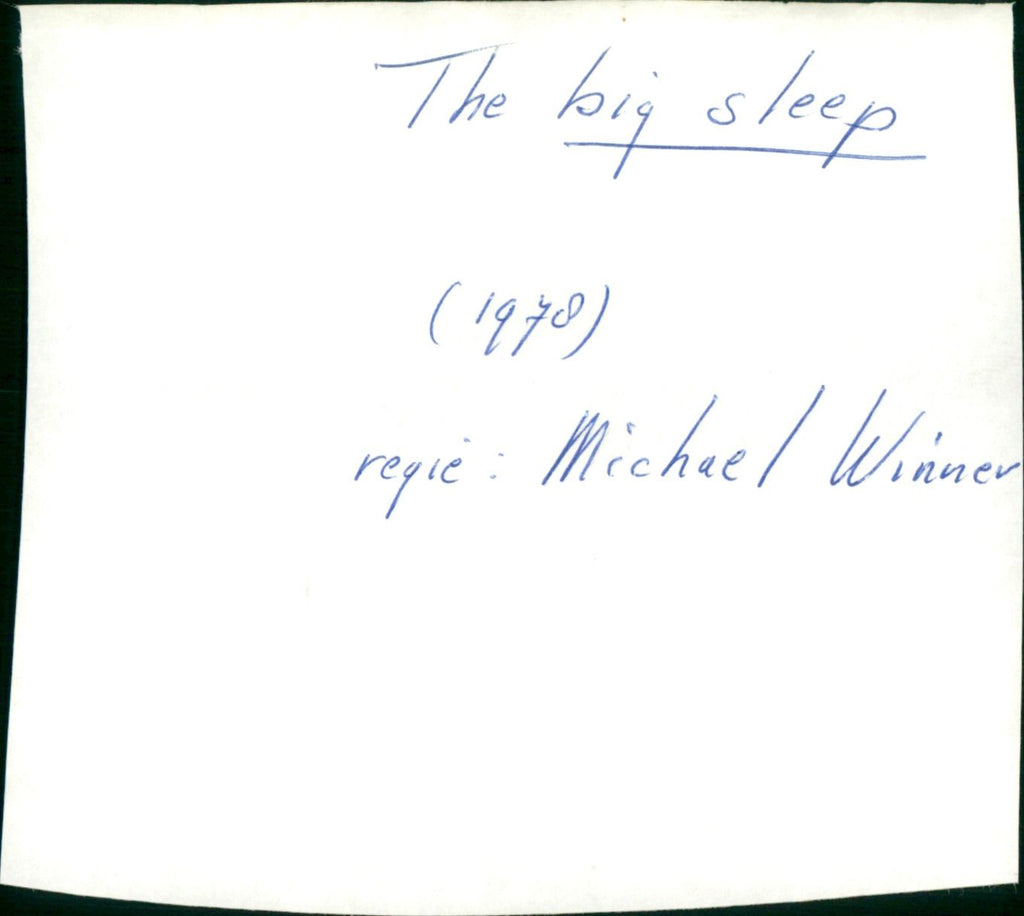 The big sleep
(1978)
regie: Michael Winner